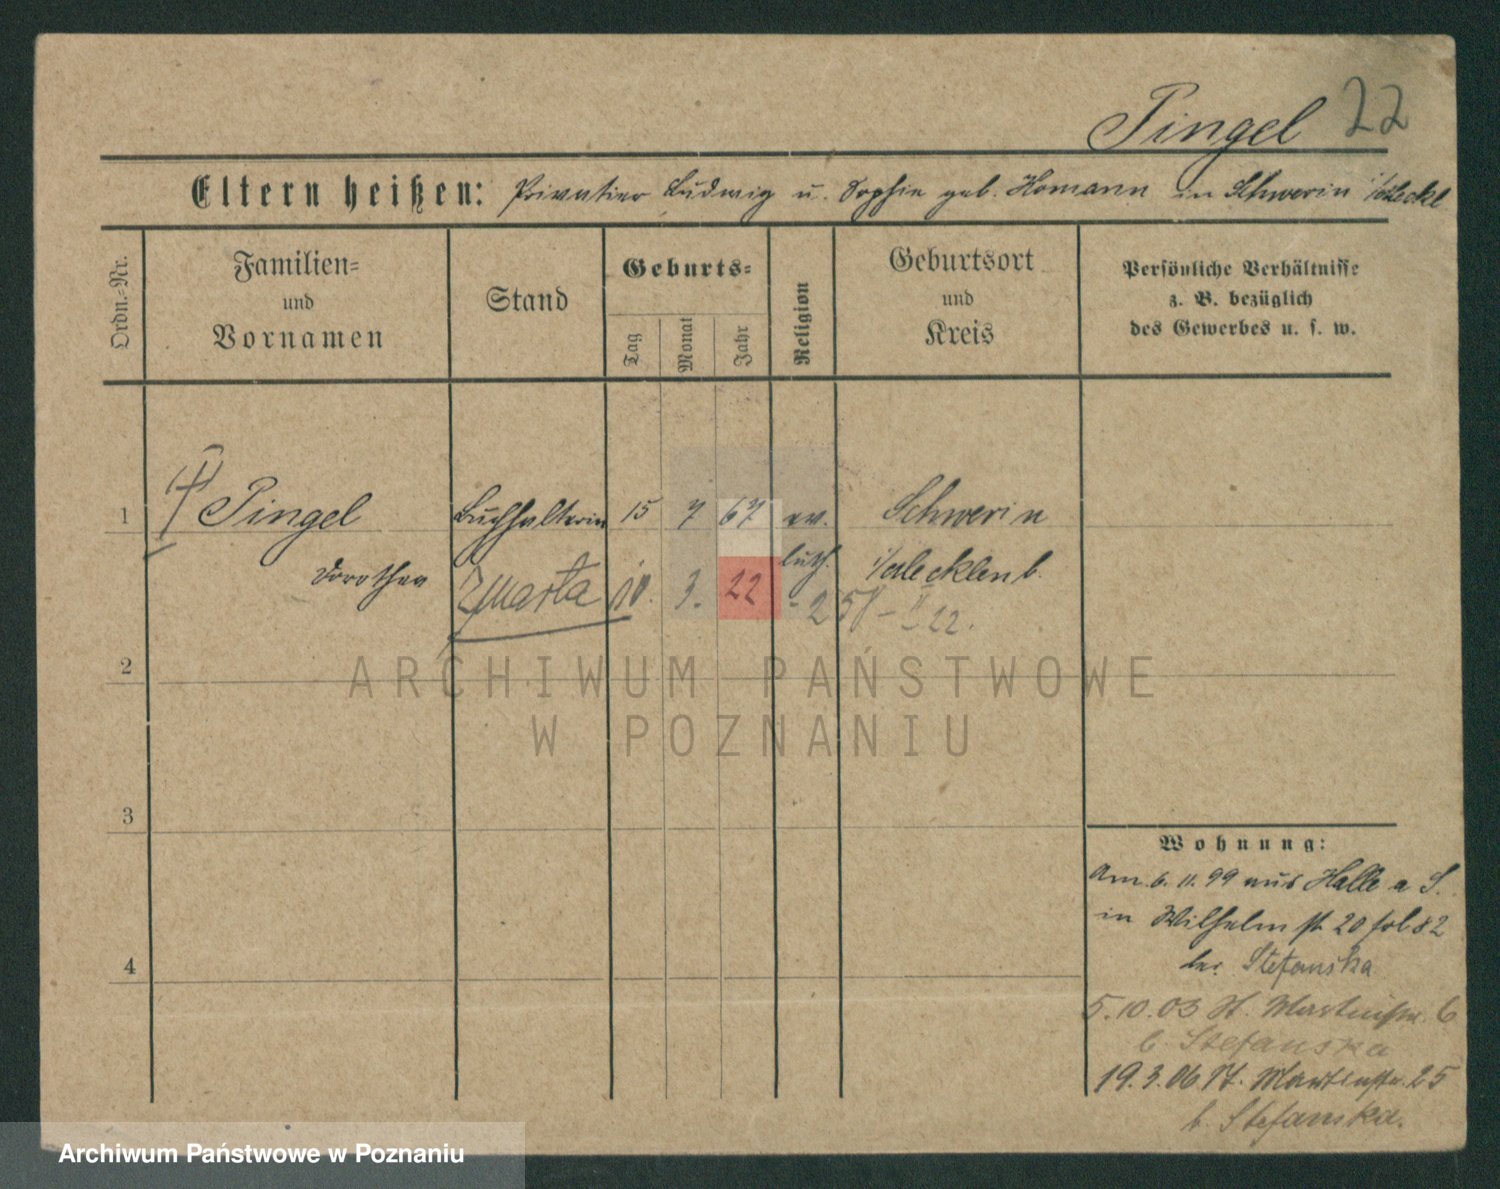 Pingel 22
Eltern heißen: Privatier Ludwig u. Sophie geb. Homann in Schwerin i/Meckl.
Ordn.-Nr.
Familien- und Vornamen
Stand
Geburts-
Tag
Monat
Jahr
Religion
Geburtsort und Kreis
Persönliche Verhältnisse
z. B. bezüglich
des Gewerbes u. s. w.
1 Pingel Buchhalterin 15 7 67 ev. Schwerin
Dorothea luth. i/Mecklenb.
Zmarła 10. 3. 22 - 258 - II 22.
2
ARCHIWUM PAŃSTWOWE
W POZNANIU
3
4
Wohnung:
Am 6. 11. 99 aus Halle a S.
in Wilhelm st 20 fol 82
bei Stefanska
5. 10. 03 St. Martinstr. 6
b Stefanska
19. 3. 06 St. Martinstr. 25
b. Stefanska.
Archiwum Państwowe w Poznaniu